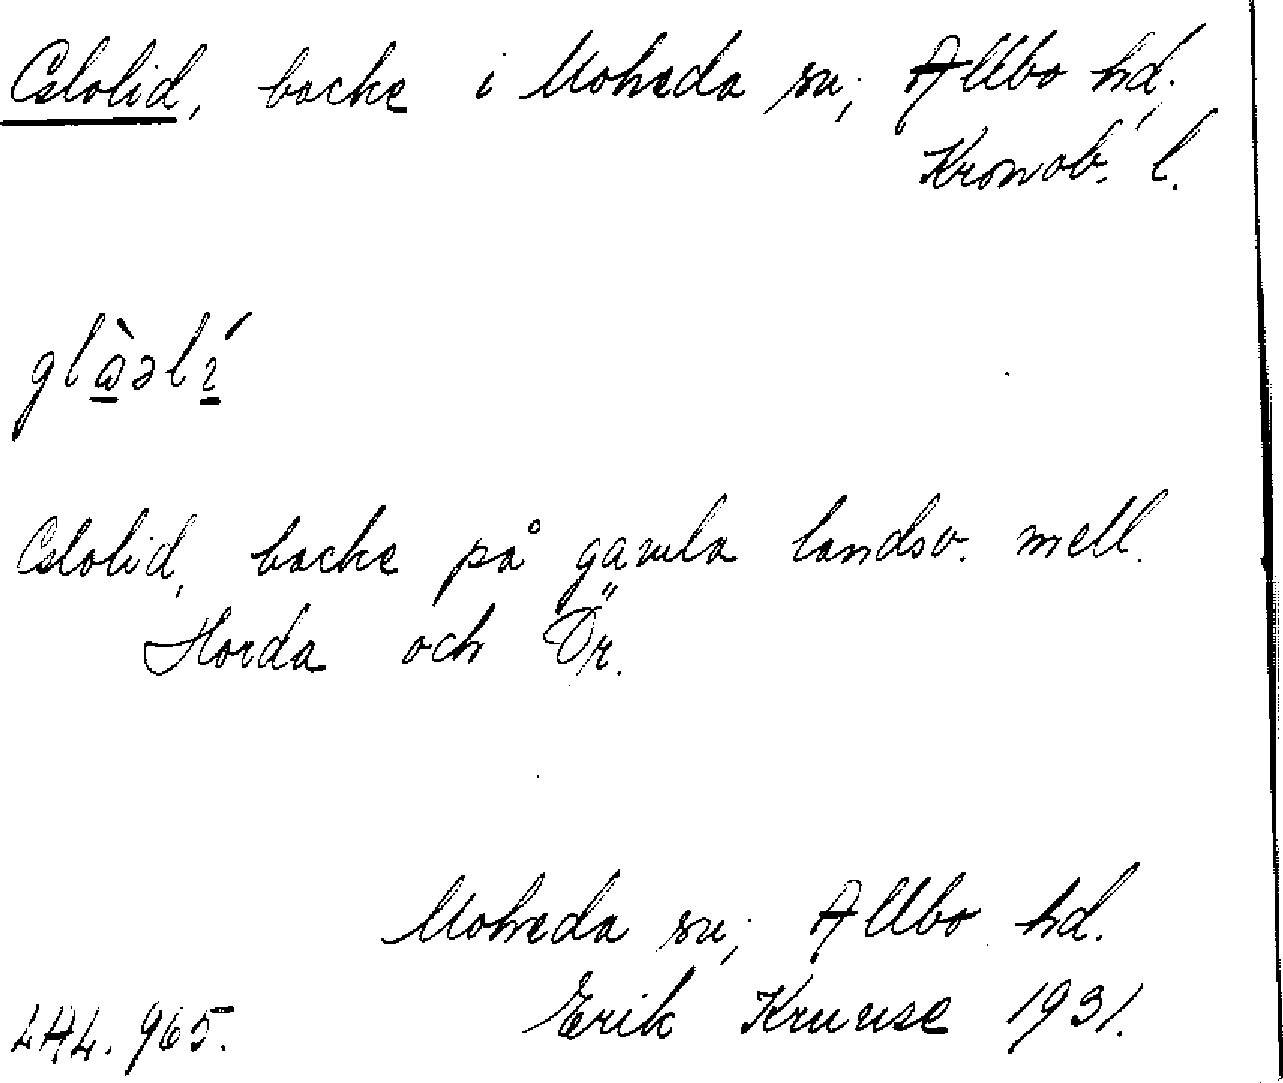 Glolid, backe i Moheda sn; Allbo hd;
Kronob. l.
glàəlí
Glolid, backe på gamla landsv. mell.
Horda och Ör.
Moheda sn; Allbo hd.
LAL. 965. Erik Kruuse 1931.